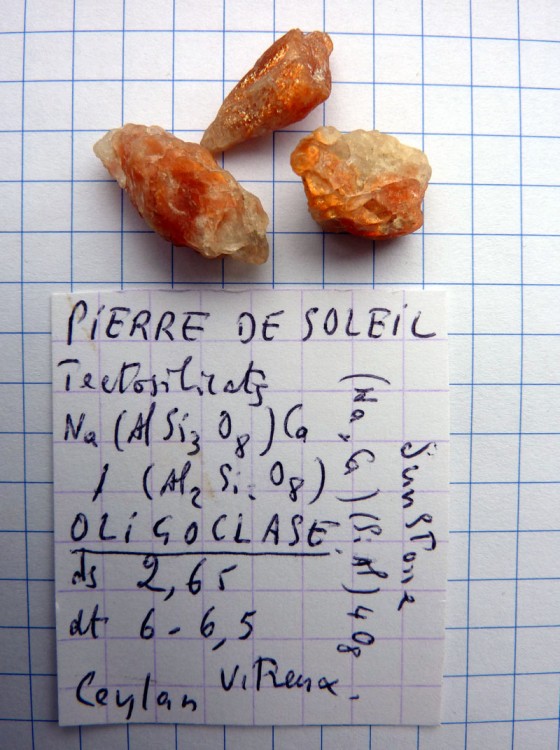 PIERRE DE SOLEIL
Tectosilicates
Na (Al Si3 O8) Ca
/ (Al2 Si2 O8)
OLIGOCLASE
ds 2,65
dt 6-6,5
Ceylan Vitreux.
(Na, Ca) (Si Al) 4 O8
Sunstone